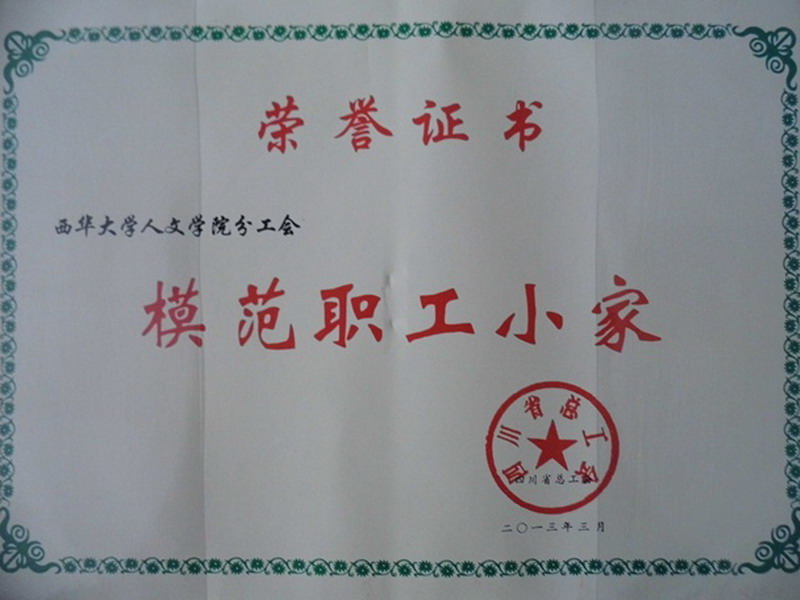 荣誉证书
西华大学人文学院分工会
模范职工小家
四川省总工会
四川省总工会
二〇一三年三月